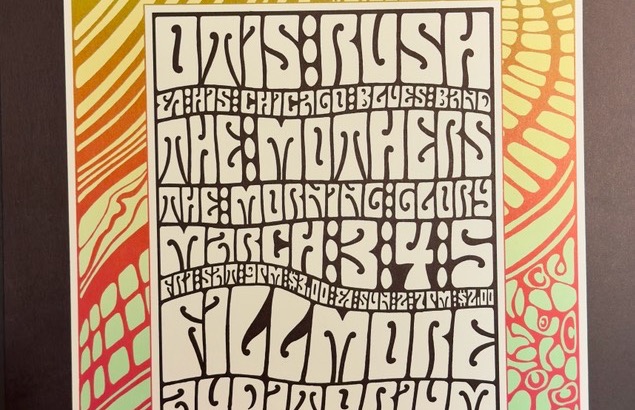 OTIS:RUSH
&:HIS:CHICAGO:BLUES:BAND
THE:MOTHERS
THE:MORNING:GLORY
MARCH:3:4:5
FRI:SAT:9PM:$3.00:&:SUN:2:7PM:$2.00
FILLMORE
AUDITORIUM